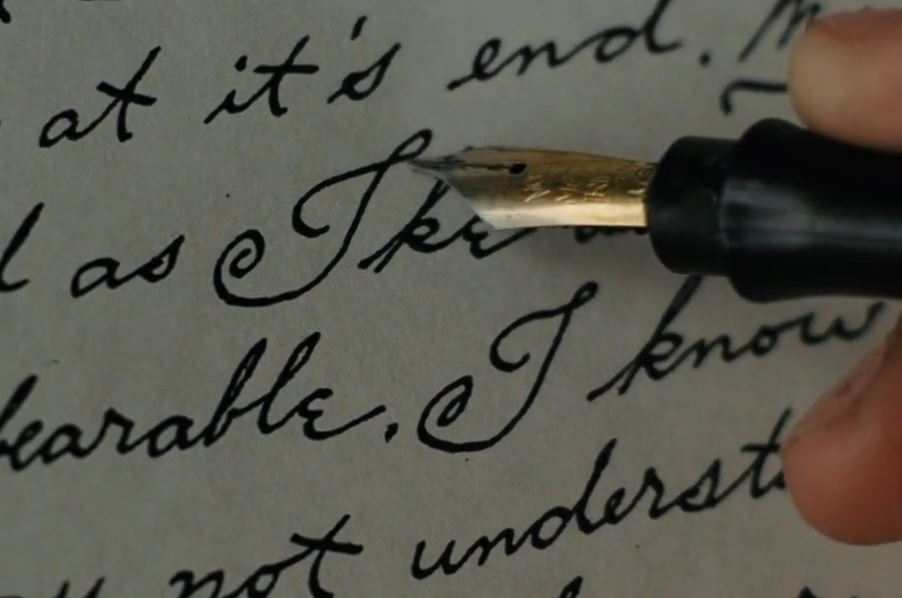 at it's end.
as I ke
bearable. I know
not underst